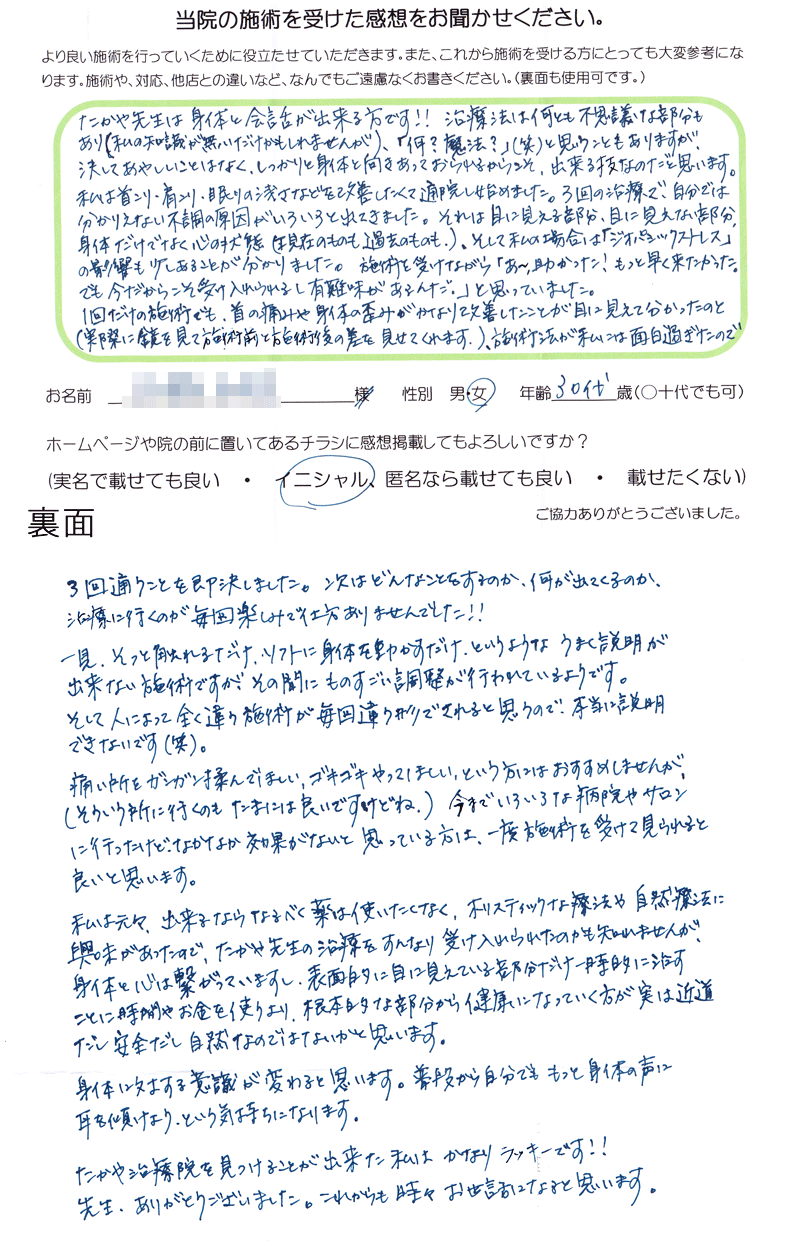 当院の施術を受けた感想をお聞かせください。
より良い施術を行っていくために役立たせていただきます。また、これから施術を受ける方にとっても大変参考にな
ります。施術や、対応、他店との違いなど、なんでもご遠慮なくお書きください。（裏面も使用可です。）
たかや先生は身体と会話が出来る方です!! 治療法は何とも不思議な部分も
あり（私の知識が無いだけかもしれませんが）、「何？魔法？」（笑）と思うこともありますが、
決してあやしいことはなく、しっかりと身体と向きあっておられるからこそ、出来る技なのだと思います。
私は首コリ・肩コリ・眠りの浅さなどを改善したくて通院し始めました。3回の治療で、自分では
分かりえない不調の原因がいろいろと出てきました。それは目に見える部分、目に見えない部分、
身体だけでなく心の状態（は現在のものも過去のものも。）、そして私の場合は「ジオパシックストレス」
の影響も少しあることが分かりました。 施術を受けながら「あ～、助かった！もっと早く来たかった。
でも今だからこそ受け入れられるし有難味があるんだ。」と思っていました。
1回だけの施術でも、首の痛みや身体の歪みがかなり改善したことが目に見えて分かったのと
（実際に鏡を見て施術前と施術後の差を見せてくれます。）、施術法が私には面白過ぎたので
お名前 様 性別 男・女 年齢 30代 歳（○十代でも可）
ホームページや院の前に置いてあるチラシに感想掲載してもよろしいですか？
（実名で載せても良い ・ イニシャル、匿名なら載せても良い ・ 載せたくない）
裏面
ご協力ありがとうございました。
3回通うことを即決しました。次はどんなことをするのか、何が出てくるのか、
治療に行くのが毎回楽しみで仕方ありませんでした!!
一見、そっと触れるだけ、ソフトに身体を動かすだけ、というようなうまく説明が
出来ない施術ですが、その間にものすごい調整が行われているようです。
そして人によって全く違う施術が毎回違う形でされると思うので、本当に説明
できないです（笑）。
痛い所をガンガン揉んでほしい、ゴキゴキやってほしい、という方にはおすすめしませんが、
（そういう所に行くのもたまには良いですけどね。） 今までいろいろな病院やサロン
に行ったけど、なかなか効果がないと思っている方は、一度施術を受けて見られると
良いと思います。
私は元々、出来るならなるべく薬は使いたくなく、ホリスティックな療法や自然療法に
興味があったので、たかや先生の治療をすんなり受け入れられたのかも知れませんが、
身体と心は繋がっていますし、表面的に目に見えている部分だけ一時的に治す
ことに時間やお金を使うより、根本的な部分から健康になっていく方が実は近道
だし安全だし自然なのではないかと思います。
身体に対する意識が変わると思います。普段から自分でももっと身体の声に
耳を傾けよう、という気持ちになります。
たかや治療院を見つけることが出来た私はかなりラッキーです!!
先生、ありがとうございました。これからも時々お世話になると思います。